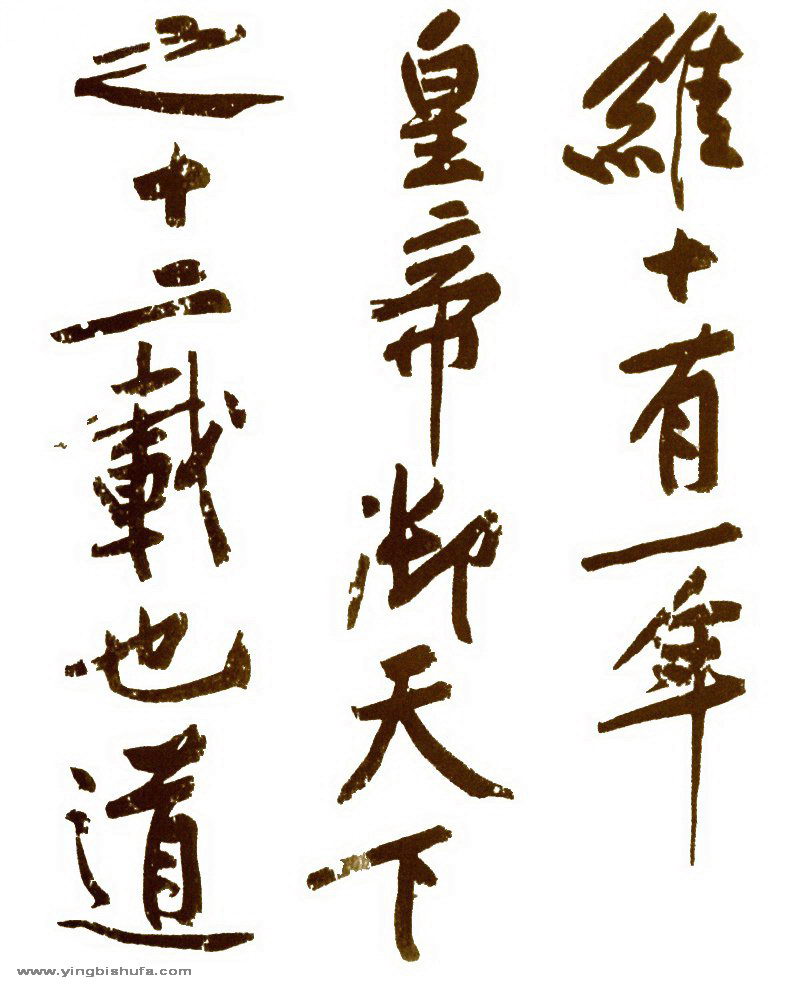 維十有一年
皇帝御天下
之十二載也道
www.yingbishufa.com